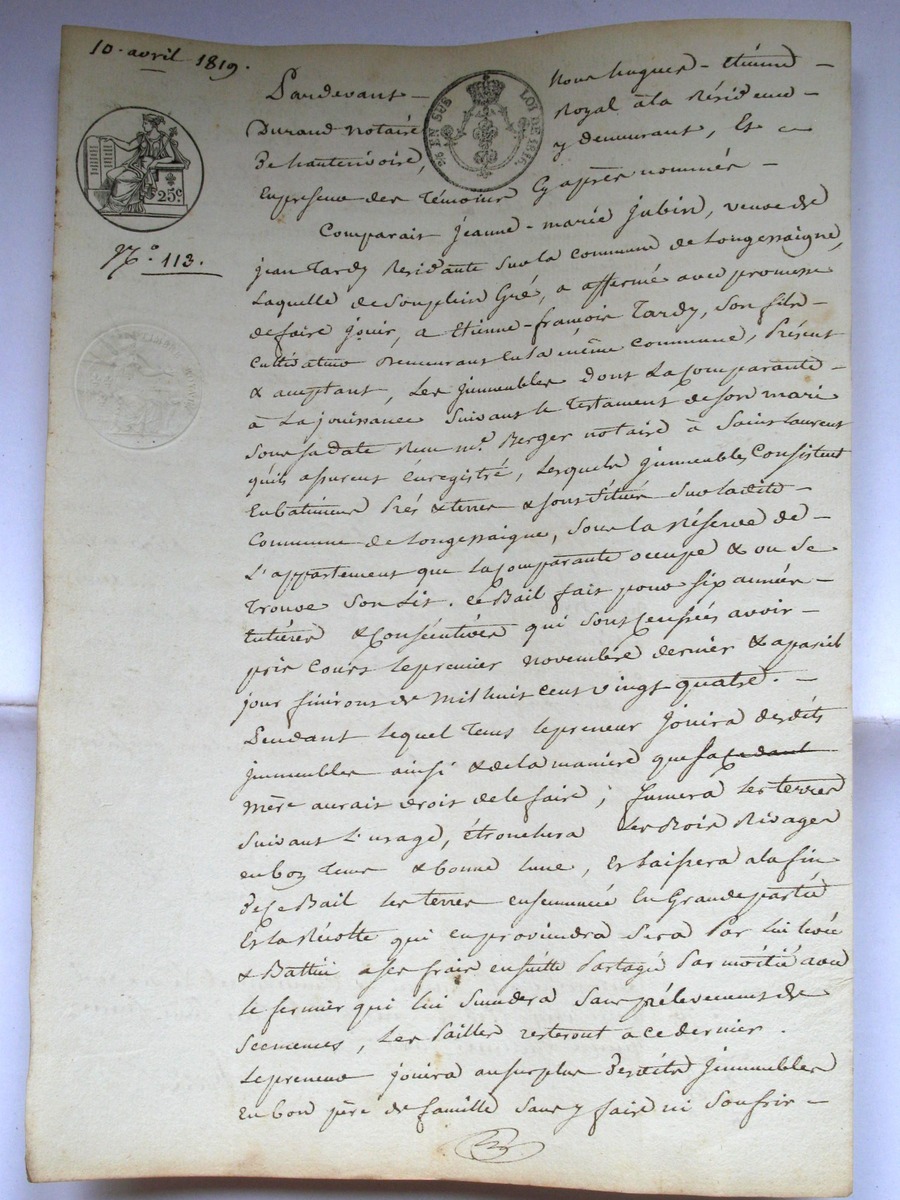 10. avril 1819.
Pardevant — Nous hugues - étienne —
Durand notaire Royal à la Résidence —
De hauterivoire, y demeurant, Et
En presence des Témoins Cy après nommés —
25 EN SUS LOI DE 1816.
25 c
N.o 113.
Comparait jeanne - marie jubin, veuve de
jean Tardy Residante sur la commune de Longessaigne,
Laquelle de son plein Gré, a affermé avec promesse
de faire jouir, a Etienne - françois Tardy, son fils —
Cultivateur Demeurant en la même commune, Présent
& acceptant, Les jmmeubles dont La Comparante —
à La jouissance suivant le Testament de son mari
sous sa date Reçu me. Berger notaire à Saint Laurent
qu'ils assurent Enregistré, Lesquels jmmeubles Consistent
En batimens Prés & terres & sont Situés sur la dite —
Commune de Longessaigne, sous la Réserve de —
L'appartement que La Comparante occupe & ou se
Trouve son Lit. Ce Bail fait pour six années —
Entières & Consécutives qui sont Censées avoir —
pris Cours le premier novembre dernier & a pareil
jour finiront de mil huit cent vingt quatre. —
Pendant lequel Tems le preneur jouira desdits
jmmeubles ainsi & de la maniere que sa
mère aurait droit de le faire ; fumera les terres
suivant L'usage, étronchera les Bois Rivages
en bon Tems & bonne Lune, Et Laissera a la fin
De Ce Bail les terres ensemencée En Grande partie
Et La Récolte qui en proviendra Sera Par Lui levée
& Battue a ses frais ensuite Partagée Par moitié avec
le fermier qui lui succédera sans prélevement de
Secmences, Les Pailles resteront a ce dernier.
Le preneur jouira au surplus Desdits jmmeubles
En bon père de famille sans y faire ni soufrir —